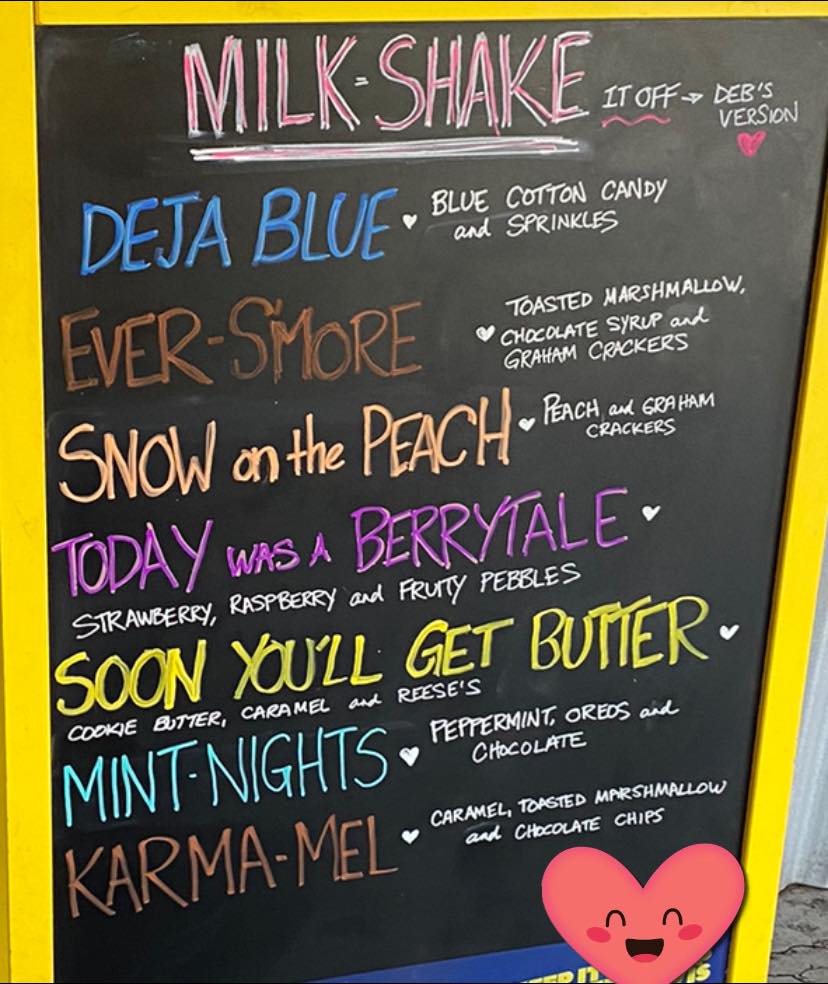 MILK-SHAKE IT OFF → DEB'S
VERSION
DEJA BLUE BLUE COTTON CANDY
and SPRINKLES
EVER-S'MORE TOASTED MARSHMALLOW,
CHOCOLATE SYRUP and
GRAHAM CRACKERS
SNOW on the PEACH PEACH and GRAHAM
CRACKERS
TODAY WAS A BERRYTALE
STRAWBERRY, RASPBERRY and FRUITY PEBBLES
SOON YOU'LL GET BUTTER
COOKIE BUTTER, CARAMEL and REESE'S
MINT-NIGHTS PEPPERMINT, OREOS and
CHOCOLATE
KARMA-MEL CARAMEL, TOASTED MARSHMALLOW
and CHOCOLATE CHIPS